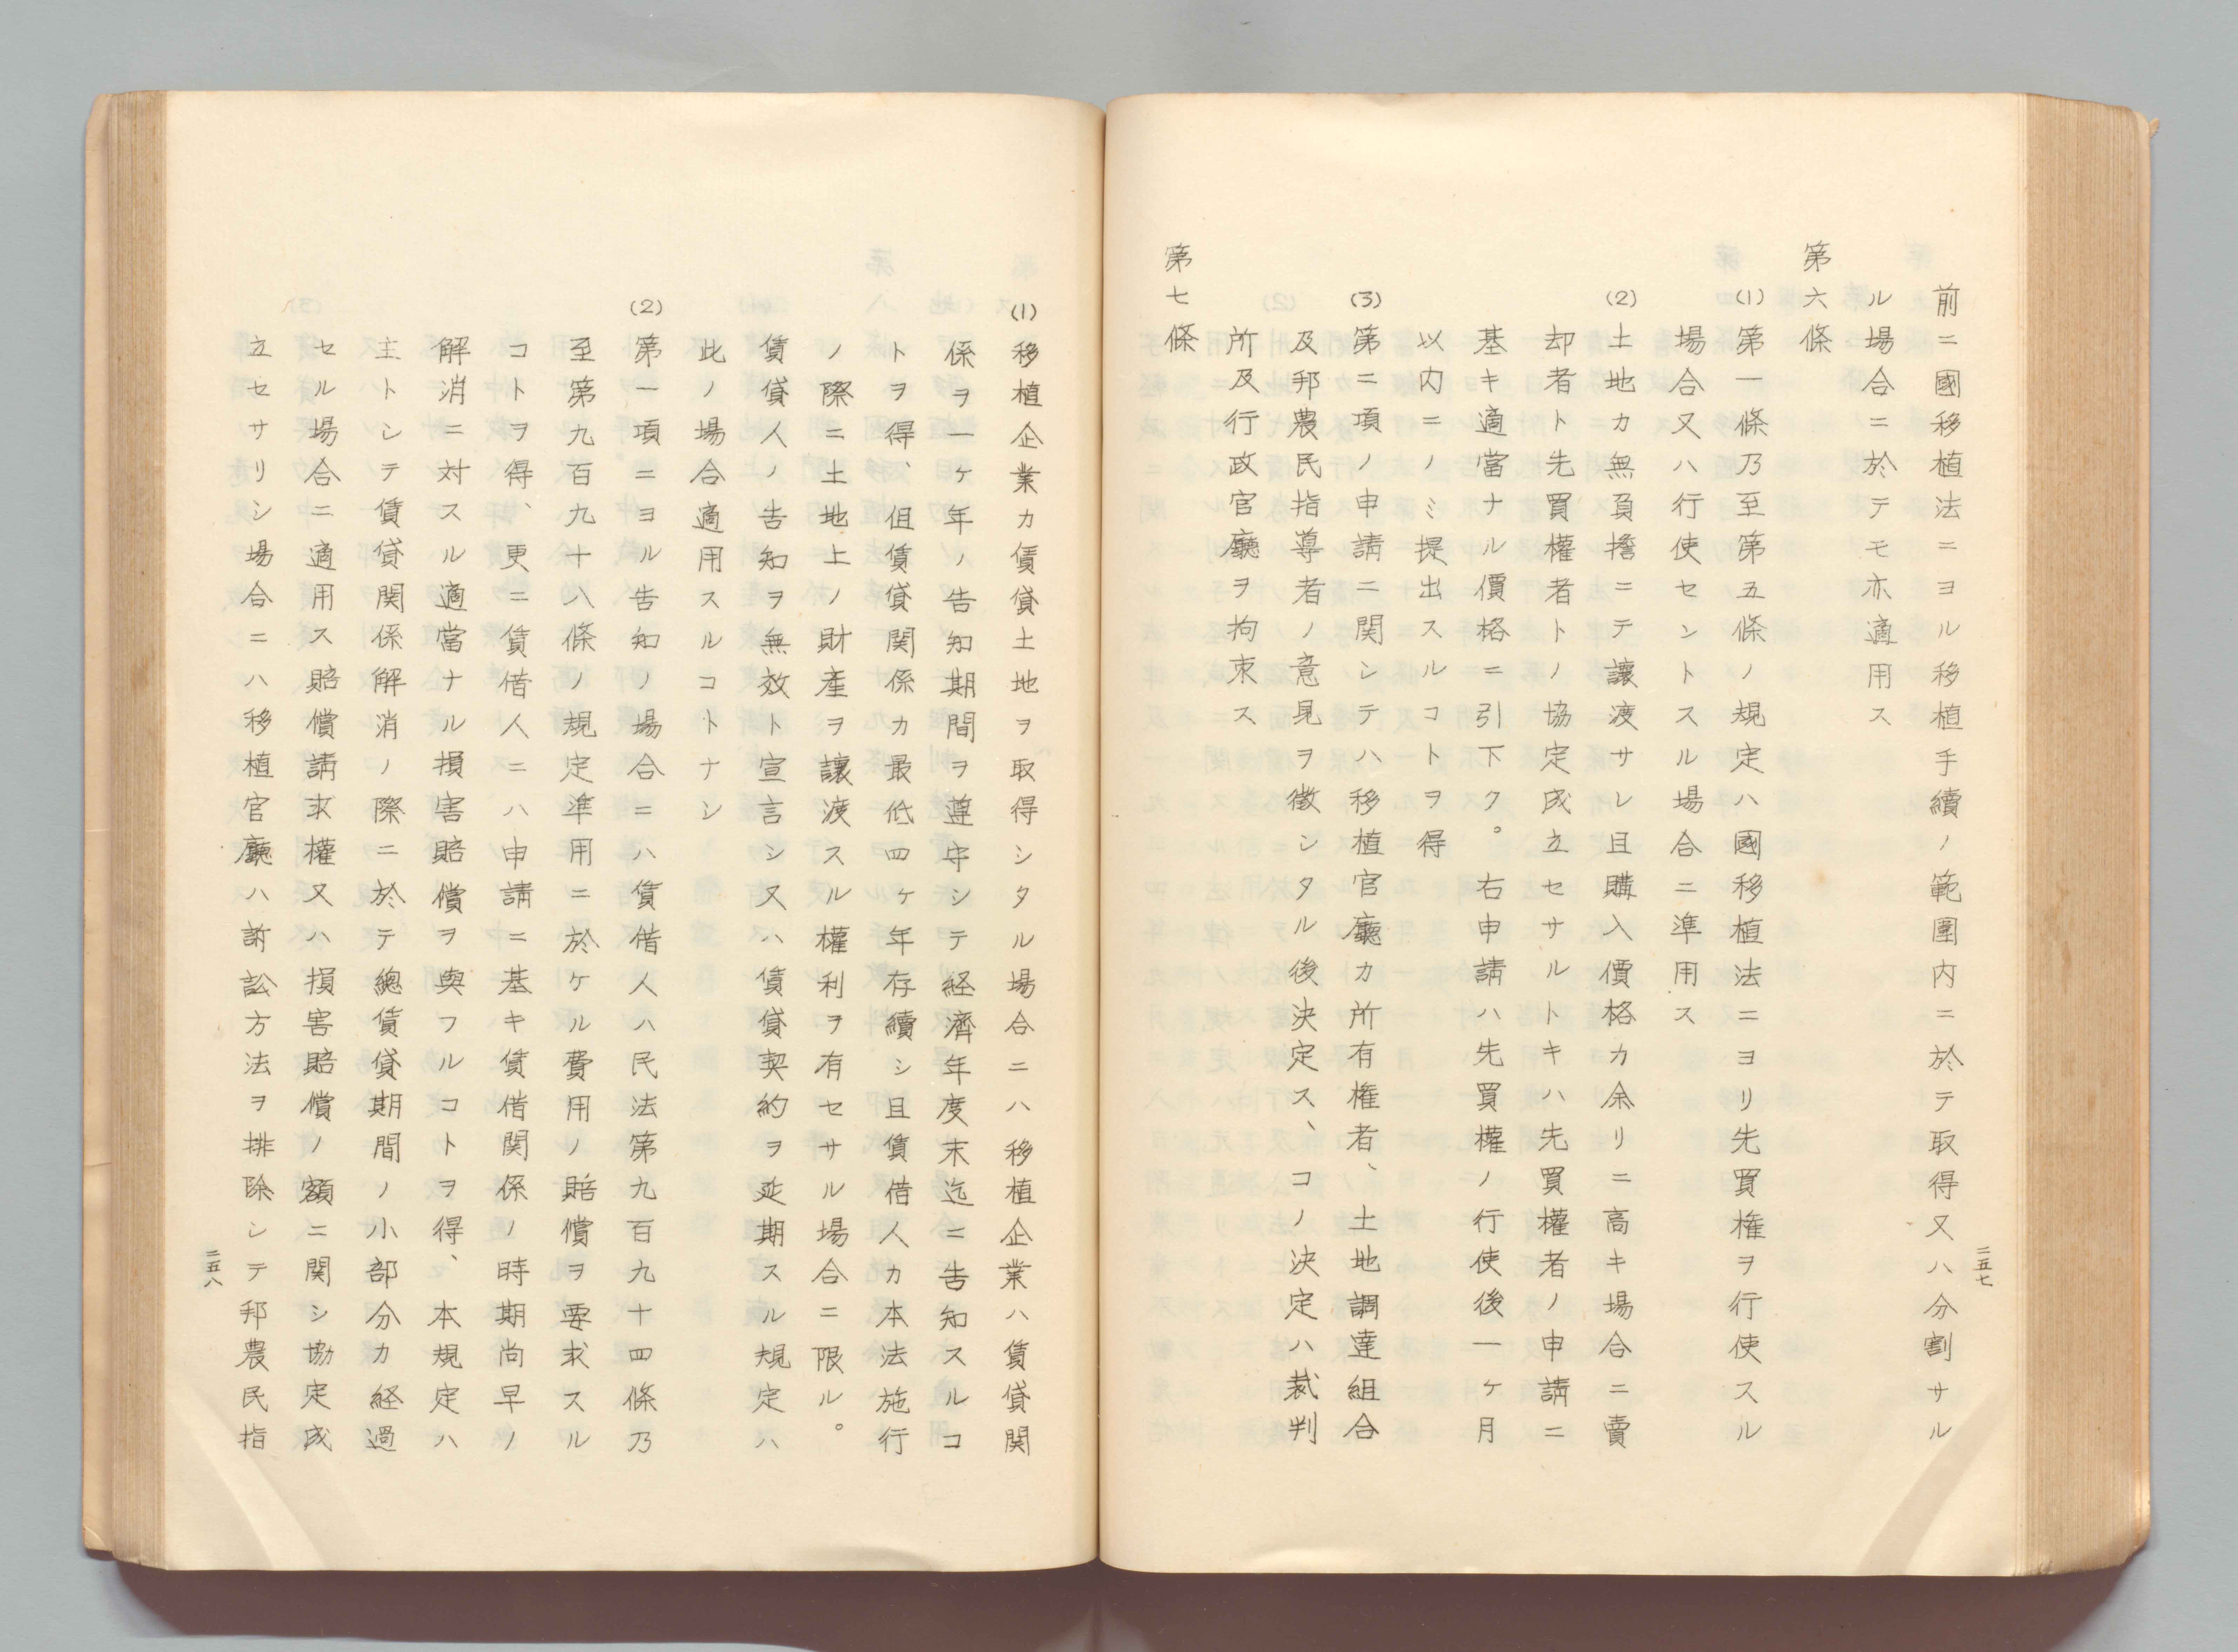 前ニ國移植法ニヨル移植手續ノ範圍内ニ於テ取得又ハ分割サル
ル場合ニ於テモ亦適用ス
第六條
(1)第一條乃至第五條ノ規定ハ國移植法ニヨリ先買権ヲ行使スル
場合又ハ行使セントスル場合ニ準用ス
(2)土地カ無負擔ニテ讓渡サレ且購入價格カ余リニ高キ場合ニ賣
却者ト先買權者トノ協定成立セサルトキハ先買權者ノ申請ニ
基キ適當ナル價格ニ引下ク。右申請ハ先買權ノ行使後一ヶ月
以内ニノミ提出スルコトヲ得
(3)第二項ノ申請ニ関シテハ移植官廳カ所有権者、土地調達組合
及邦農民指導者ノ意見ヲ徴シタル後決定ス、コノ決定ハ裁判
所及行政官廳ヲ拘束ス
第七條
二五七
(1)移植企業カ賃貸土地ヲ取得シタル場合ニハ移植企業ハ賃貸関
係ヲ一ヶ年ノ告知期間ヲ遵守シテ経濟年度末迄ニ告知スルコ
トヲ得、但賃貸関係カ最低四ヶ年存續シ且賃借人カ本法施行
ノ際ニ土地上ノ財產ヲ讓渡スル權利ヲ有セサル場合ニ限ル。
賃貸人ノ告知ヲ無效ト宣言シ又ハ賃貸契約ヲ延期スル規定ハ
此ノ場合適用スルコトナシ
(2)第一項ニヨル告知ノ場合ニハ賃借人ハ民法第九百九十四條乃
至第九百九十八條ノ規定準用ニ於ケル費用ノ賠償ヲ要求スル
コトヲ得、更ニ賃借人ニハ申請ニ基キ賃借関係ノ時期尚早ノ
解消ニ対スル適當ナル損害賠償ヲ與フルコトヲ得、本規定ハ
主トシテ賃貸関係解消ノ際ニ於テ總賃貸期間ノ小部分カ経過
セル場合ニ適用ス賠償請求權又ハ損害賠償ノ額ニ関シ協定成
立セサリシ場合ニハ移植官廳ハ訴訟方法ヲ排除シテ邦農民指
二五八